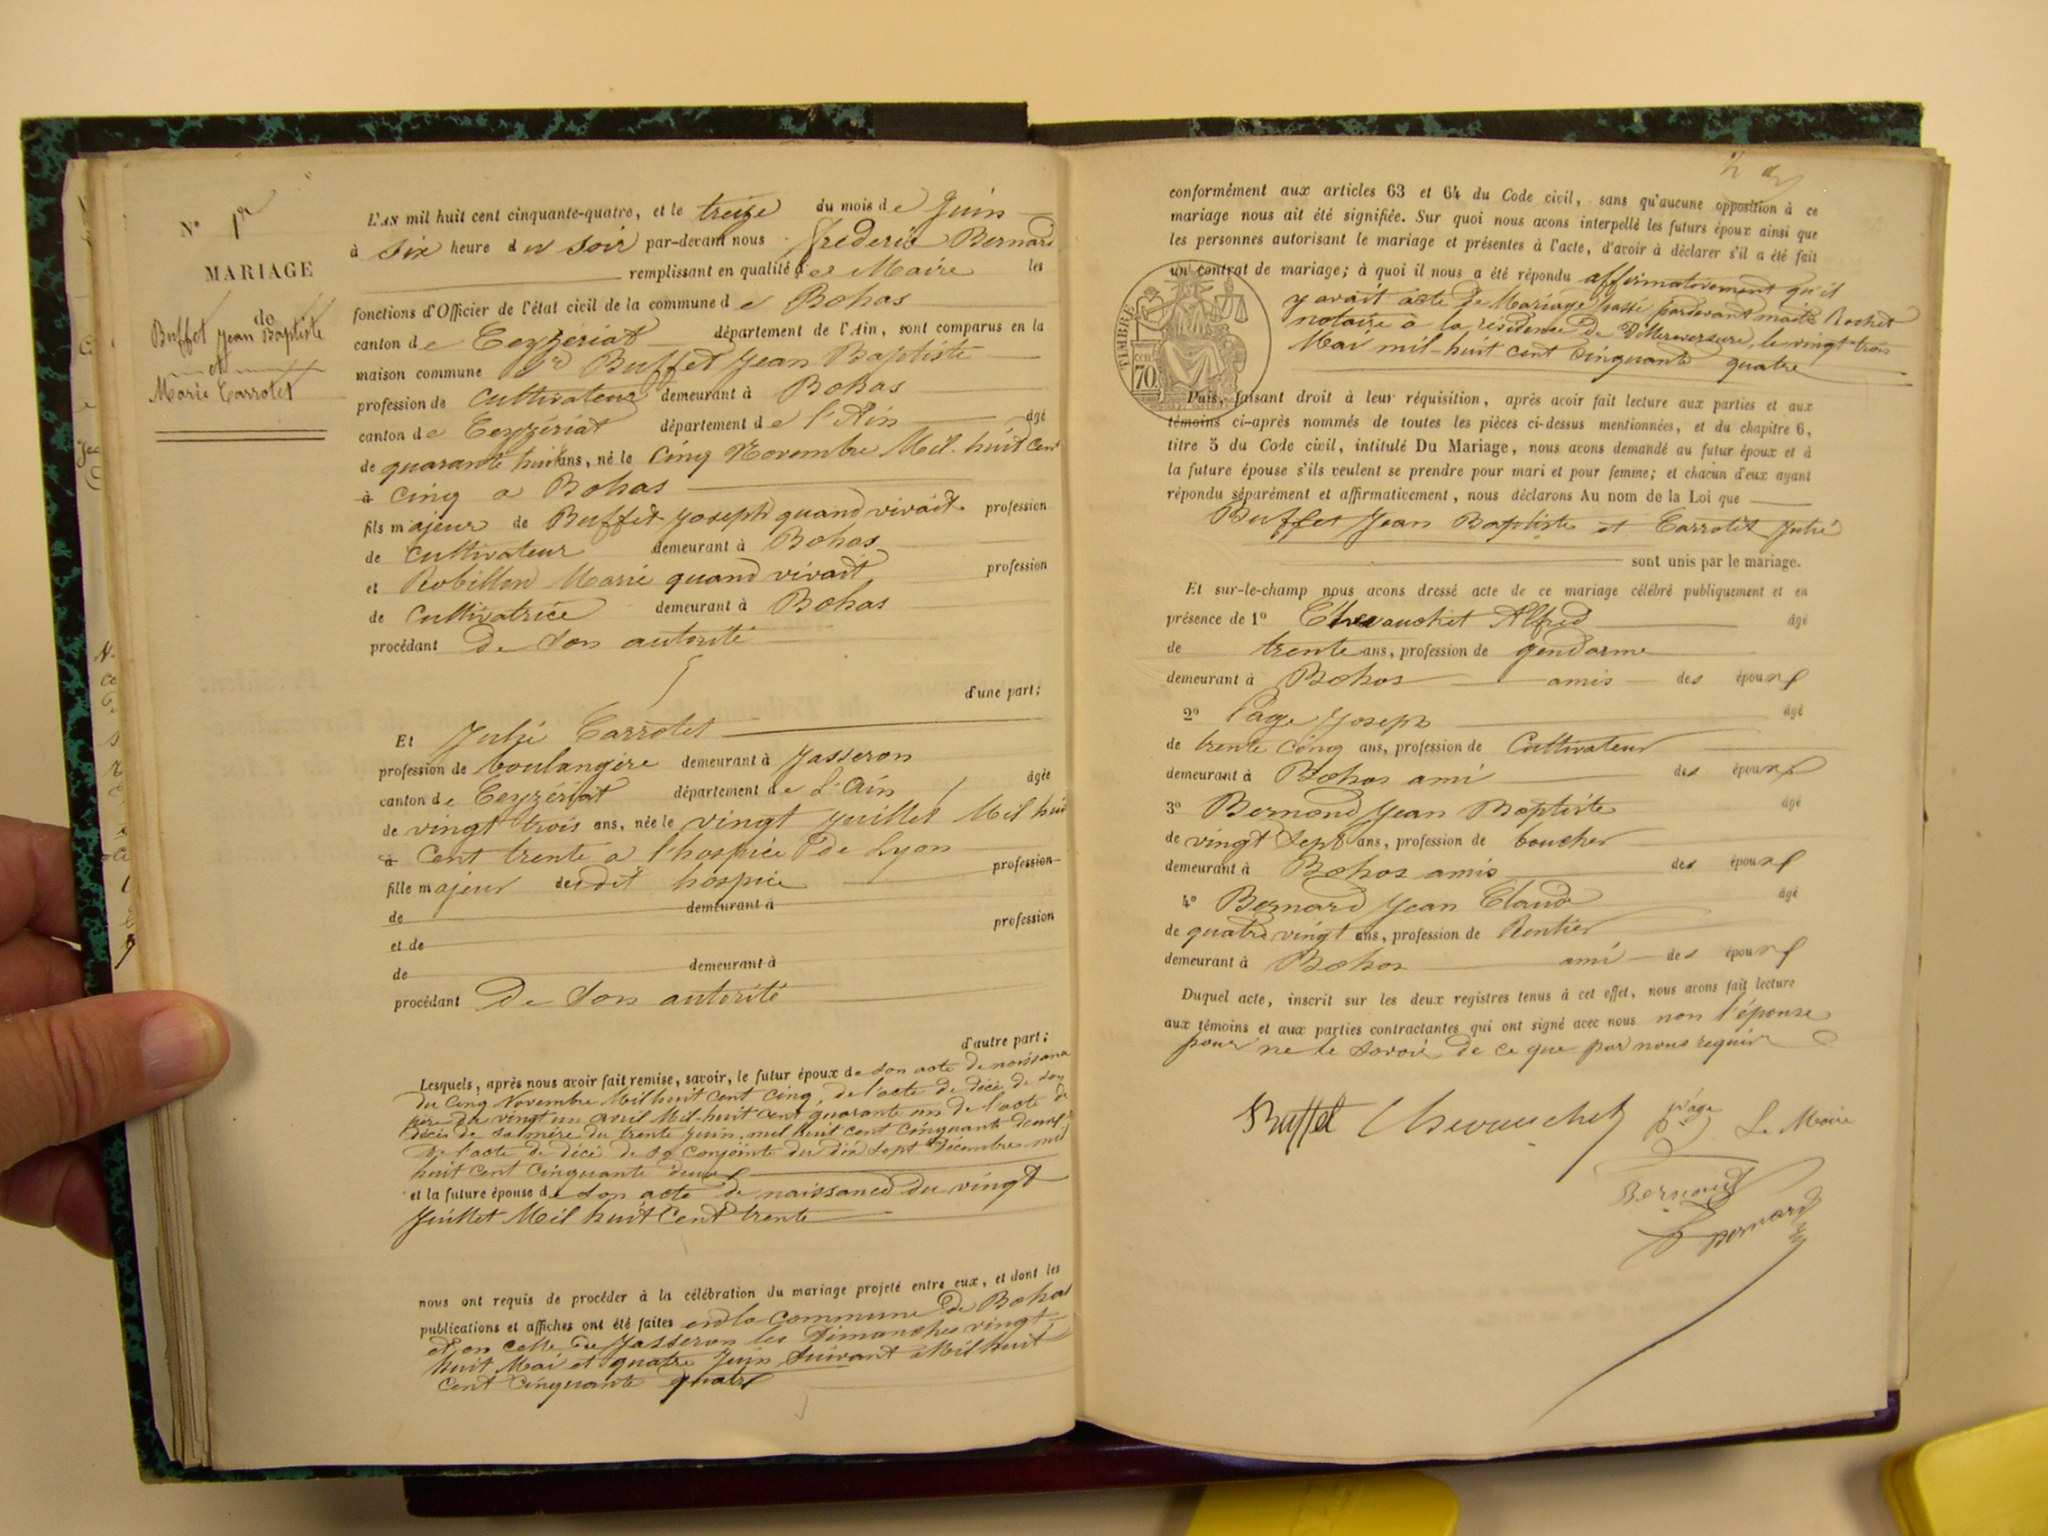 N° 1er
MARIAGE
de
Buffet Jean Baptiste
et
Marie Carrotet
L'AN mil huit cent cinquante-quatre, et le treize du mois de Juin
à six heure du soir par-devant nous Frederic Bernard
remplissant en qualité de Maire les
fonctions d'Officier de l'état civil de la commune de Bohas
canton de Ceyzériat département de l'Ain, sont comparus en la
maison commune Buffet Jean Baptiste
profession de Cultivateur demeurant à Bohas
canton de Ceyzériat département de l'Ain âgé
de quarante huit ans, né le Cinq Novembre Mil-huit Cent
à cinq a Bohas
fils majeur de Buffet Joseph quand vivait profession
de cultivateur demeurant à Bohas
et Robillon Marie quand vivait profession
de Cultivatrice demeurant à Bohas
procédant De Son autorité
d'une part;
Et Julie Carrotet
profession de boulangère demeurant à Jasseron
canton de Ceyzériat département de L'Ain âgée
de vingt trois ans, née le vingt Juillet Mil huit
à Cent trente a l'hospice de Lyon
fille majeur dudit hospice profession
de demeurant à
et de profession
de demeurant à
procédant De Son autorité
d'autre part;
Lesquels, après nous avoir fait remise, savoir, le futur époux de son acte de naissance
du Cinq Novembre Mil huit cent Cinq, de l'acte de décè de son
père du vingt un avril Mil-huit cent quarante un de l'acte de
décès de sa mère du trente Juin mil huit cent cinquante deux
de l'acte de décè de sa conjointe du dix sept Décembre mil
huit cent Cinquante deux
et la future épouse de son acte de naissance du vingt
Juillet Mil huit Cent trente
nous ont requis de procéder à la célébration du mariage projeté entre eux, et dont les
publications et affiches ont été faites en la commune de Bohas
et en celle de Jasseron les Dimanches vingt
huit Mai et quatre Juin Suivant Mil huit
cent Cinquante quatre
conformément aux articles 63 et 64 du Code civil, sans qu'aucune opposition à ce
mariage nous ait été signifiée. Sur quoi nous avons interpellé les futurs époux ainsi que
les personnes autorisant le mariage et présentes à l'acte, d'avoir à déclarer s'il a été fait
un contrat de mariage; à quoi il nous a été répondu affirmativement qu'il
y avait acte de Mariage passé pardevant maitre Rochet
notaire à la résidence de Villereversure, le vingt trois
Mai mil-huit cent Cinquante quatre
TIMBRE
70
Puis, faisant droit à leur réquisition, après avoir fait lecture aux parties et aux
témoins ci-après nommés de toutes les pièces ci-dessus mentionnées, et du chapitre 6,
titre 5 du Code civil, intitulé Du Mariage, nous avons demandé au futur époux et à
la future épouse s'ils veulent se prendre pour mari et pour femme; et chacun d'eux ayant
répondu séparément et affirmativement, nous déclarons Au nom de la Loi que
Buffet Jean Baptiste et Carrotet Julie
sont unis par le mariage.
Et sur-le-champ nous avons dressé acte de ce mariage célébré publiquement et en
présence de 1° Chevauchet Alfred âgé
de trente ans, profession de gendarme
demeurant à Bohas amis des époux
2° Page Joseph âgé
de trente cinq ans, profession de Cultivateur
demeurant à Bohas ami des époux
3° Bernond Jean Baptiste âgé
de vingt Sept ans, profession de boucher
demeurant à Bohas amis des époux
4° Bernard Jean Claude âgé
de quatre vingt ans, profession de Rentier
demeurant à Bohas ami des époux
Duquel acte, inscrit sur les deux registres tenus à cet effet, nous avons fait lecture
aux témoins et aux parties contractantes qui ont signé avec nous non l'épouse
pour ne le Savoir de ce que par nous requise
Buffet Chevauchet page Le Maire
Bernond
Bernard